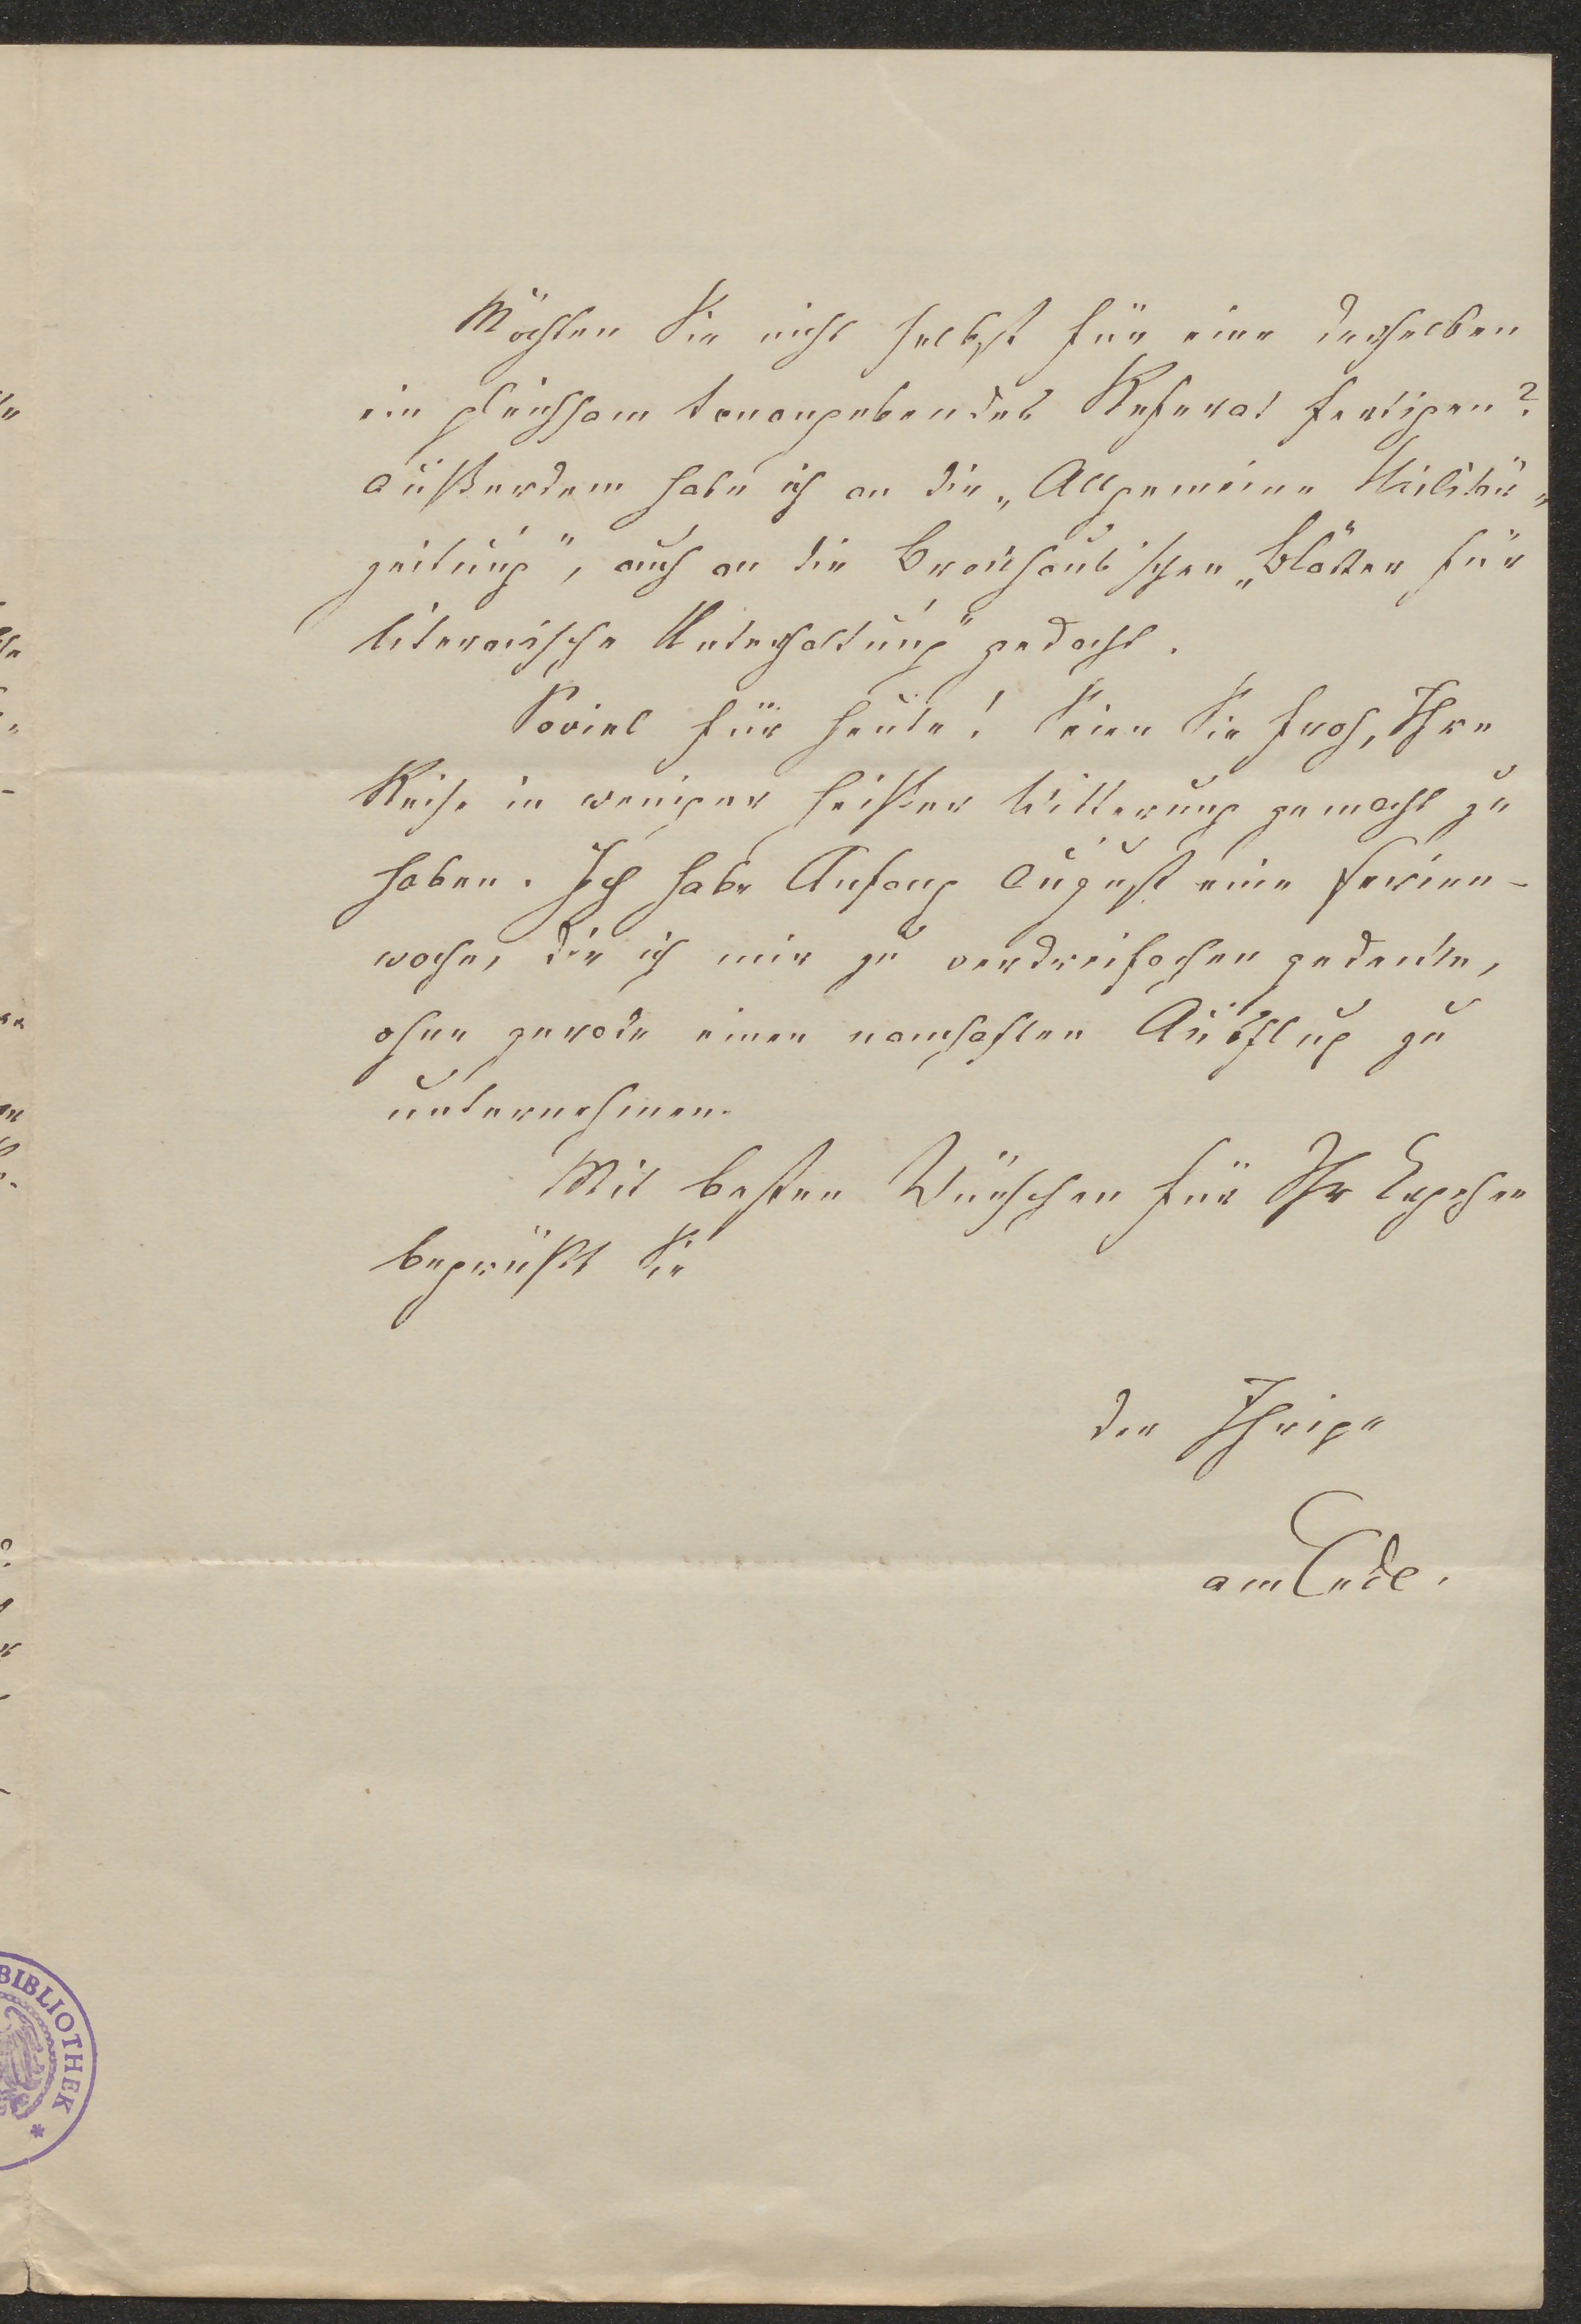 Möchten Sie nicht selbst für eine derselben
ein gleichsam tonangebendes Referat fertigen?
Außerdem habe ich an die „Allgemeine Militär„
zeitung", auch an die Brockhaus'schen „Blätter für
literarische Unterhaltung" gedacht.
Soviel für heute! Seien Sie froh, Ihre
Reise in weniger heißer Witterung gemacht zu
haben. Ich habe Anfang August eine Ferien-
woche, die ich mir zu verdreifachen gedenke,
ohne gerade einen namhaften Ausflug zu
unternehmen.
Mit besten Wünschen für Ihr Ergehen
begrüßt Sie
der Ihrige
am Ende.
BIBLIOTHEK *